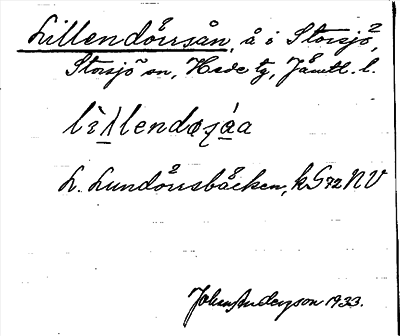 Lillendörrsån, å i Storsjö,
Storsjö sn, Hede tg, Jämtl. l.
lìllendøʂáa
L. Lundörrsbäcken, k G 72 NV
Johan Anderzson 1933.